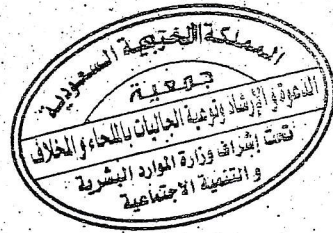 المملكة العربية السعودية
جمعية
الدعوة و الإرشاد وتوعية الجاليات بالملحاء و المخلاف
تحت إشراف وزارة الموارد البشرية
و التنمية الاجتماعية